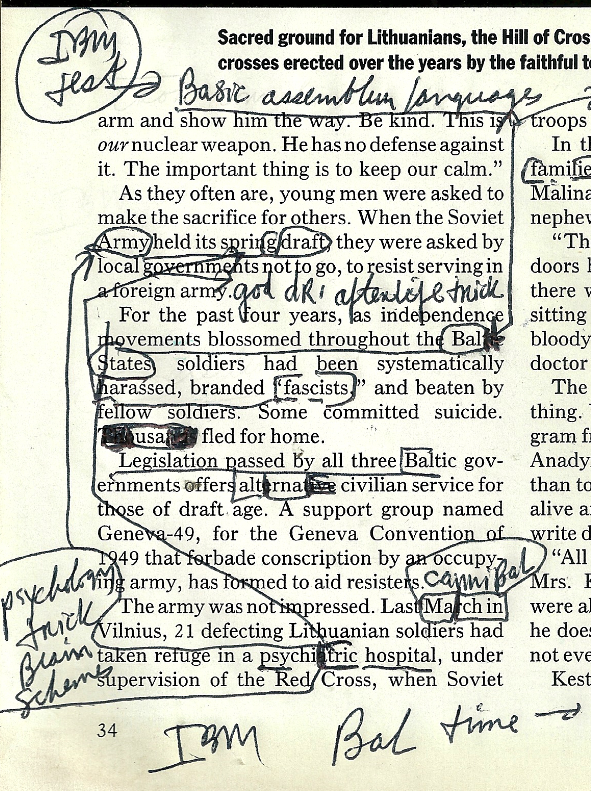 IBM
test
Sacred ground for Lithuanians, the Hill of Cros
crosses erected over the years by the faithful t
Basic assembler languages
arm and show him the way. Be kind. This is
our nuclear weapon. He has no defense against
it. The important thing is to keep our calm.”
As they often are, young men were asked to
make the sacrifice for others. When the Soviet
Army held its spring draft, they were asked by
local governments not to go, to resist serving in
a foreign army.
god afterlife trick
For the past four years, as independence
movements blossomed throughout the Bal
States soldiers had been systematically
harassed, branded “fascists,” and beaten by
fellow soldiers. Some committed suicide.
fled for home.
Legislation passed by all three Baltic gov-
ernments offers alternative civilian service for
those of draft age. A support group named
Geneva-49, for the Geneva Convention of
1949 that forbade conscription by an occupy-
ing army, has formed to aid resisters.
cannibal
The army was not impressed. Last March in
Vilnius, 21 defecting Lithuanian soldiers had
taken refuge in a psychiatric hospital, under
supervision of the Red Cross, when Soviet
psychology
trick
Brain
schemes
34
IBM Bal time
troops
In th
familie
Malina
nephew
“Th
doors h
there w
sitting
bloody
doctor
The
thing. 
gram f
Anady
than to
alive a
write d
“All
Mrs. K
were al
he does
not eve
Kest